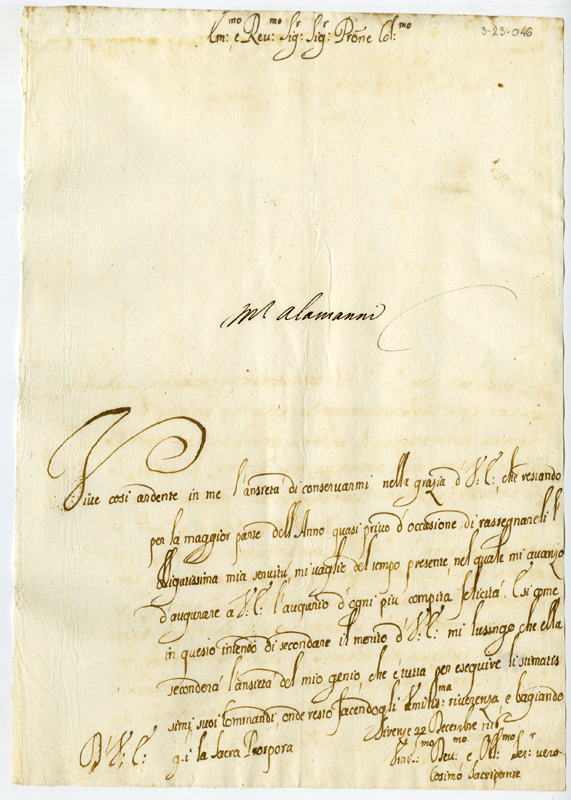 Em:mo e Reu:mo Sig:r Sig:r Prone Col:mo
3-23-046
Mr Alamanni
Viue così ardente in me l'ansietà di conseruarmi nella grazia d'V: E:, che restando
per la maggior parte dell'Anno quasi priuo d'occasione di rassegnareli l'
obligatissima mia seruitù, mi uaglio del tempo presente, nel quale mi auanzo
d'augurare a V: E: l'augurio d'ogni più compita felicità. E si come
in questo intendo di secondare il merito d'V: E: mi lusingo che ella
seconderà l'ansietà del mio genio, che è tutta per eseguire li stimatis
simi suoi Commandi; onde resto facendogli Vmilis:ma riuerenza, e baciando
gli la Sacra Porpora
Firenze 22 Decembre
D' V: E:
Deu:mo e Obl:mo Ser:r uero
Cosimo Sacripante